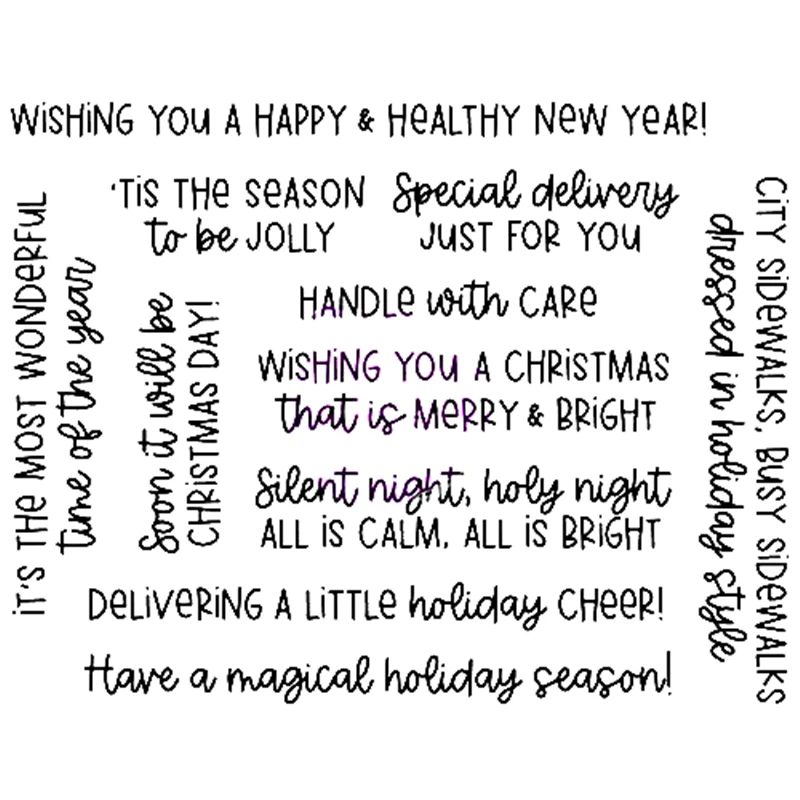 WiSHiNG YOU A HAPPY & HeALTHY NeW YeAR!
'TiS THe SeASON
to be JOLLY
Special delivery
JUST FOR YOU
iT'S THe MOST WONDeRFUL
time of the year
Soon it will be
CHRiSTMAS DAY!
HANDLe with CARe
WiSHiNG YOU A CHRiSTMAS
that is MeRRY & BRiGHT
Silent night, holy night
ALL iS CALM, ALL iS BRiGHT
CiTY SiDeWALKS, BUSY SiDeWALKS
dressed in holiday style
DeLiVeRiNG A LiTTLe holiday CHeeR!
Have a magical holiday season!